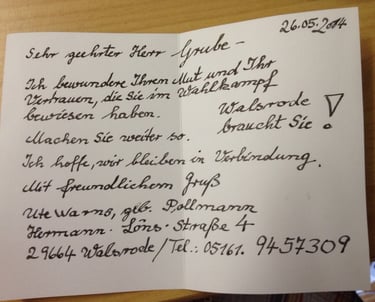 26.05.2014
Sehr geehrter Herr Grube -
Ich bewundere Ihren Mut und Ihr
Vertrauen, die Sie im Wahlkampf
bewiesen haben.
Walsrode
braucht Sie!
Machen Sie weiter so.
Ich hoffe, wir bleiben in Verbindung.
Mit freundlichem Gruß
Ute Warns, geb. Pollmann
Hermann-Löns-Straße 4
29664 Walsrode/Tel.: 05161. 9457309